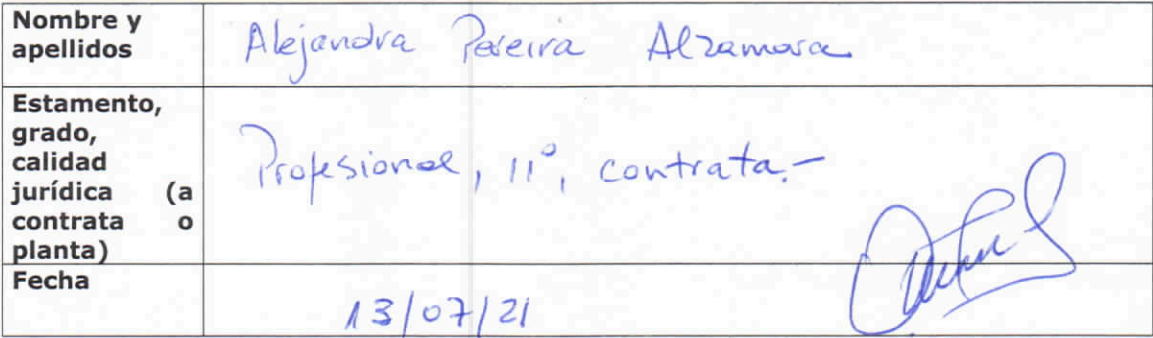 Nombre y
apellidos
Alejandra Pereira Alzamora
Estamento,
grado,
calidad
jurídica (a
contrata o
planta)
Profesional, 11°, contrata.-
Fecha
13/07/21